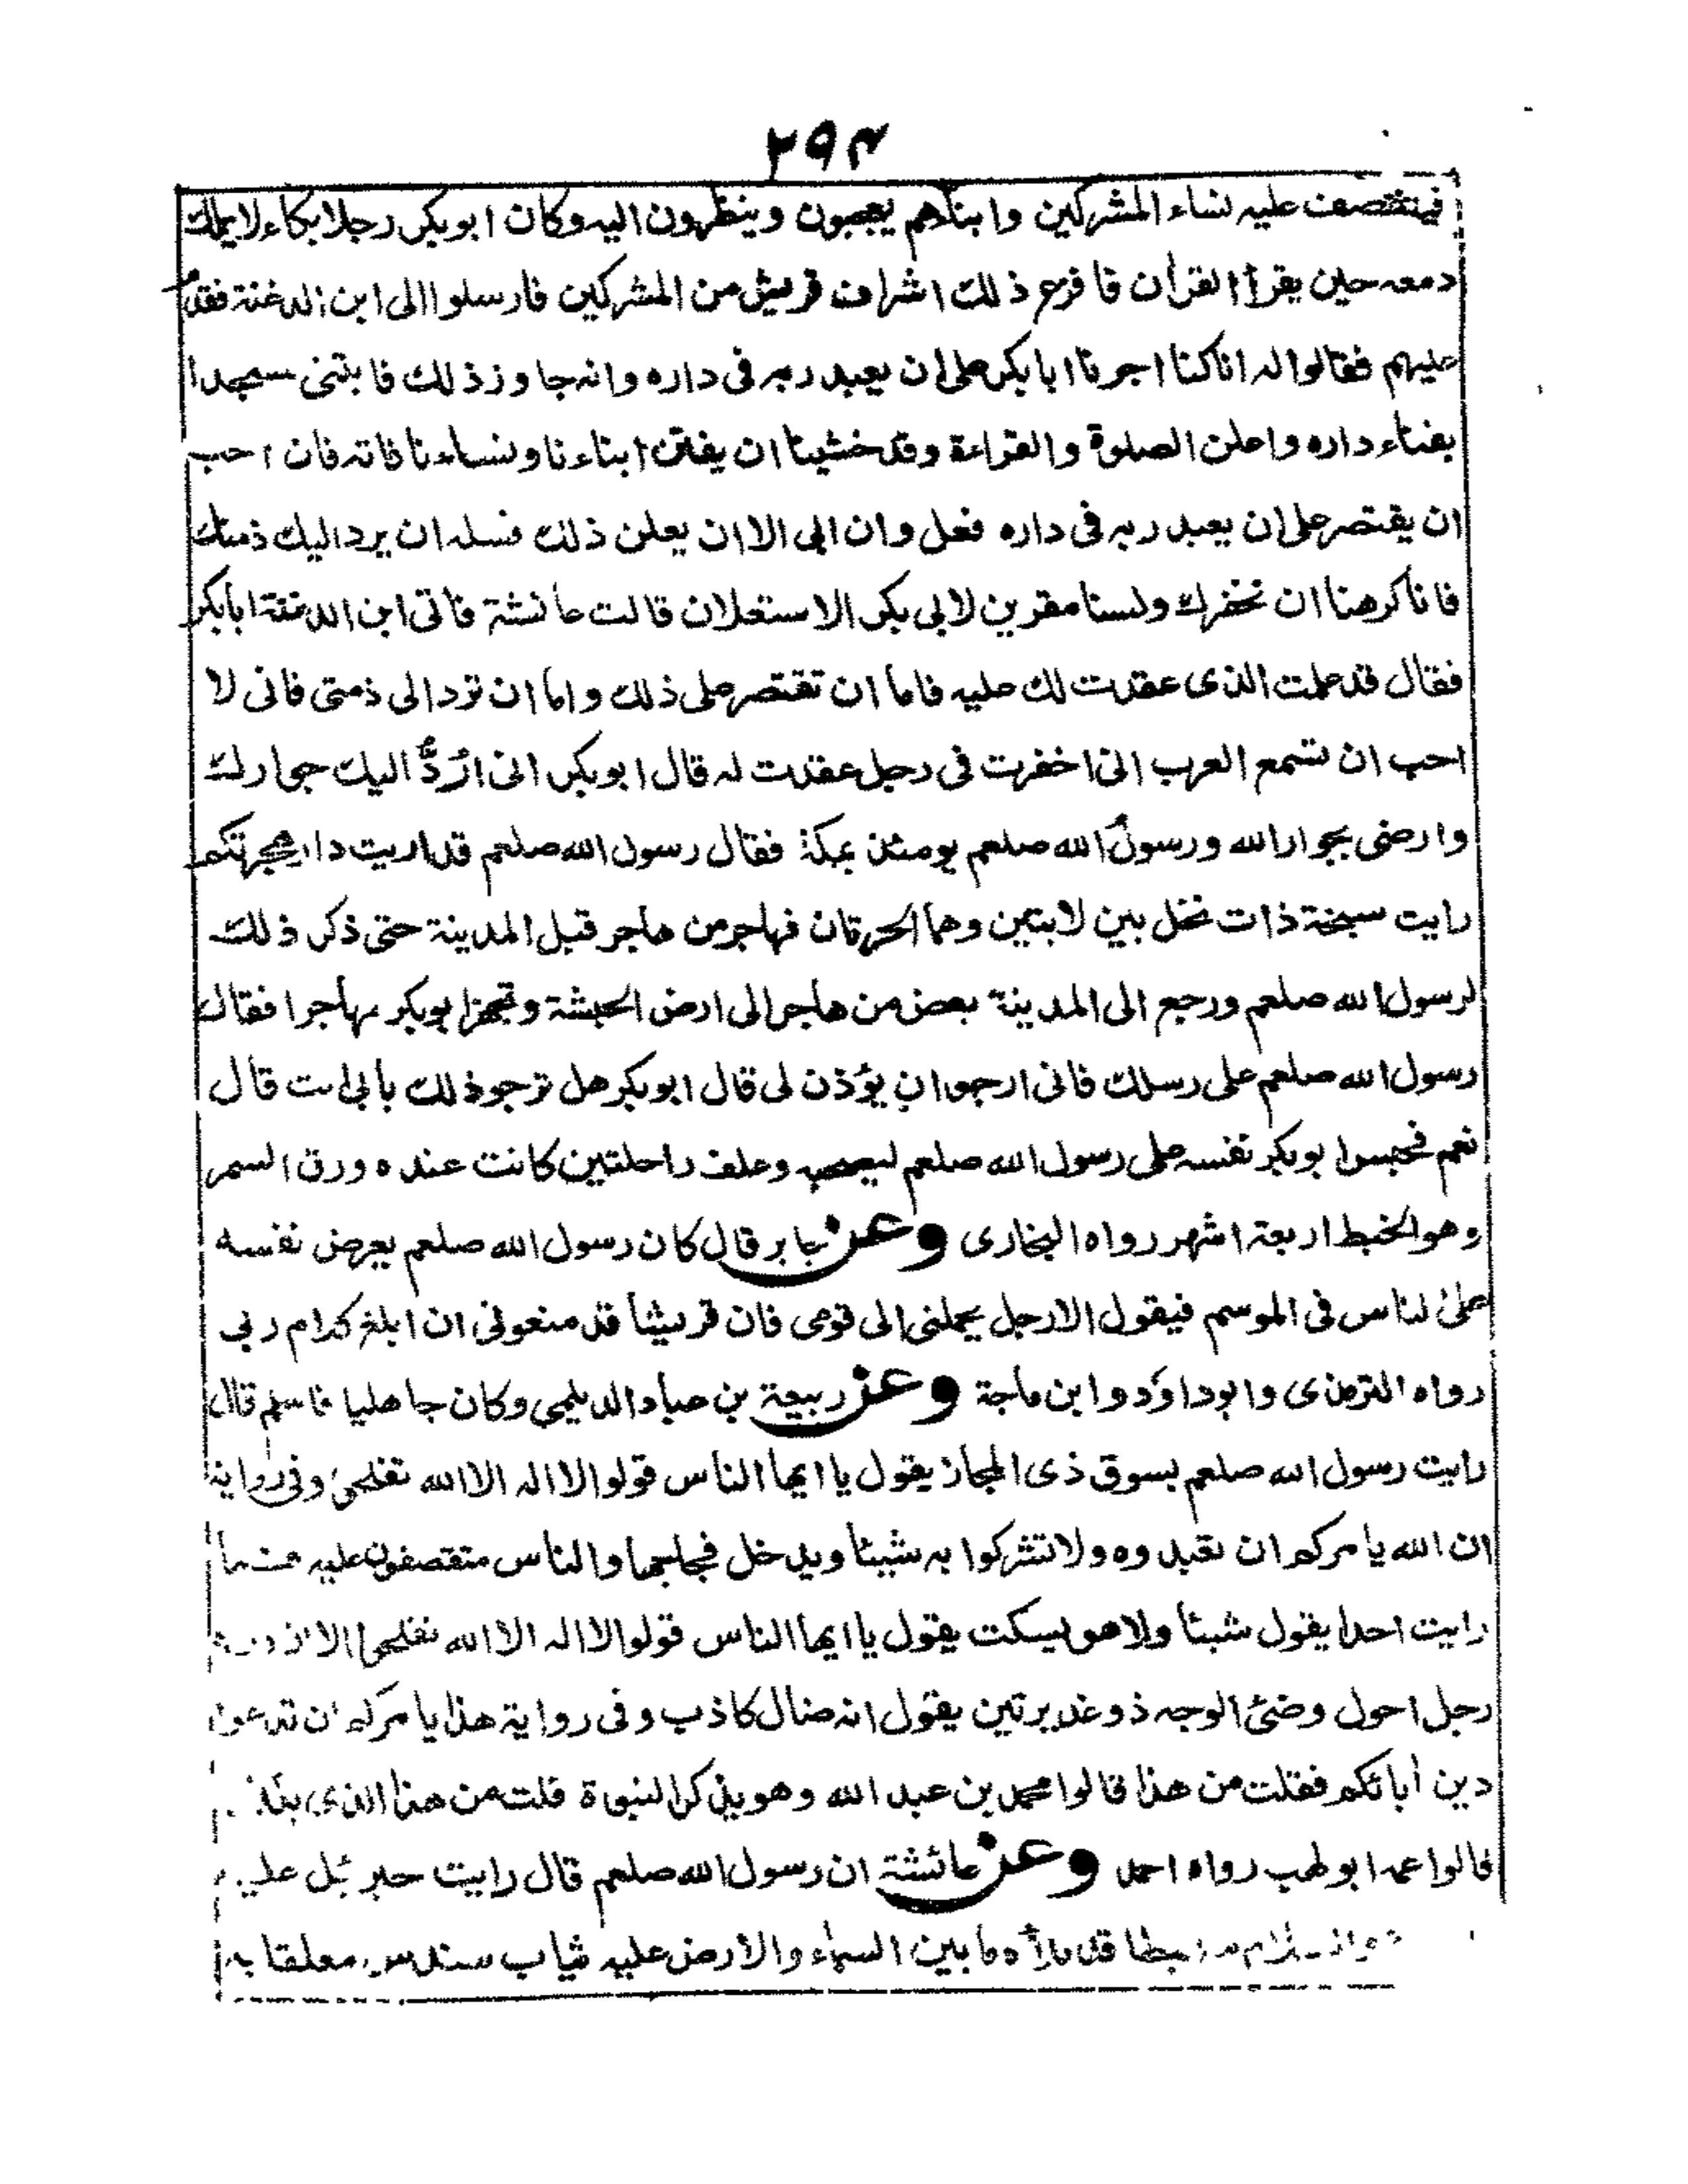 ۲۹۴
فيتقصف عليه نساء المشركين وابناءهم يعجبون وينظرون اليه وكان ابوبكر رجلا بكاء لايملك
دمعه حين يقرأ القرأن فافزع ذلك اشراف قريش من المشركين فارسلوا الى ابن الدغنة فقدم
عليهم فقالوا له اناكنا اجرنا ابابكر على ان يعبد ربه فى داره وانه جاوز ذلك فابتنى مسجدا
بفناء داره واعلن الصلوة والقراءة وقد خشينا ان يفتن ابناءنا ونساءنا فاته فان احب
ان يقتصر على ان يعبد ربه فى داره فعل وان ابى الا ان يعلن ذلك فسله ان يرد اليك ذمتك
فانا كرهنا ان نخفرك ولسنا مقرين لابى بكر الاستعلان قالت عائشة فاتى ابن الدغنة ابابكر
فقال قد علمت الذى عقدت لك عليه فاما ان تقتصر على ذلك واما ان ترد الى ذمتى فانى لا
احب ان تسمع العرب انى اخفرت فى رجل عقدت له قال ابوبكر انى ارُدُّ اليك جوارك
وارضى بجوار الله ورسولُ الله صلعم يومئذ بمكة فقال رسول الله صلعم قد اريت دار هجرتكم
رايت سبخة ذات نخل بين لابتين وهما الحرتان فهاجر من هاجر قبل المدينة حتى ذكر ذلك
لرسول الله صلعم ورجع الى المدينة بعض من هاجر الى ارض الحبشة وتجهز ابوبكر مهاجرا فقال
رسول الله صلعم على رسلك فانى ارجوا ان يؤذن لى قال ابوبكر هل ترجو ذلك بابى انت قال
نعم فحبس ابوبكر نفسه على رسول الله صلعم ليصحبه وعلف راحلتين كانت عنده ورق السمر
وهو الخبط اربعة اشهر رواه البخارى وعن جابر قال كان رسول الله صلعم يعرض نفسه
على الناس فى الموسم فيقول الا رجل يحملنى الى قومى فان قريشا قد منعونى ان ابلغ كلام ربى
رواه الترمذى وابوداؤد وابن ماجة وعن ربيعة بن عباد الديلمى وكان جاهليا فاسلم قال
رايت رسول الله صلعم بسوق ذى المجاز يقول يا ايها الناس قولوا لا اله الا الله تفلحوا وفى رواية
ان الله يامركم ان تعبدوه ولا تشركوا به شيئا ويدخل فجاجها والناس متقصفون عليه فما
رايت احدا يقول شيئا ولا هو يسكت يقول يا ايها الناس قولوا لا اله الا الله تفلحوا الا ان
رجل احول وضئ الوجه ذو غديرتين يقول انه ضال كاذب وفى رواية هذا يامركم ان تدعوا
دين أبائكم فقلت من هذا قالوا محمد بن عبد الله وهو يذكر النبوة قلت من هذا الذى
قالوا عمه ابو لهب رواه احمد وعن عائشة ان رسول الله صلعم قال رايت جبرئيل عليه
قد ملأ ما بين السماء والارض عليه ثياب سندس معلقا به